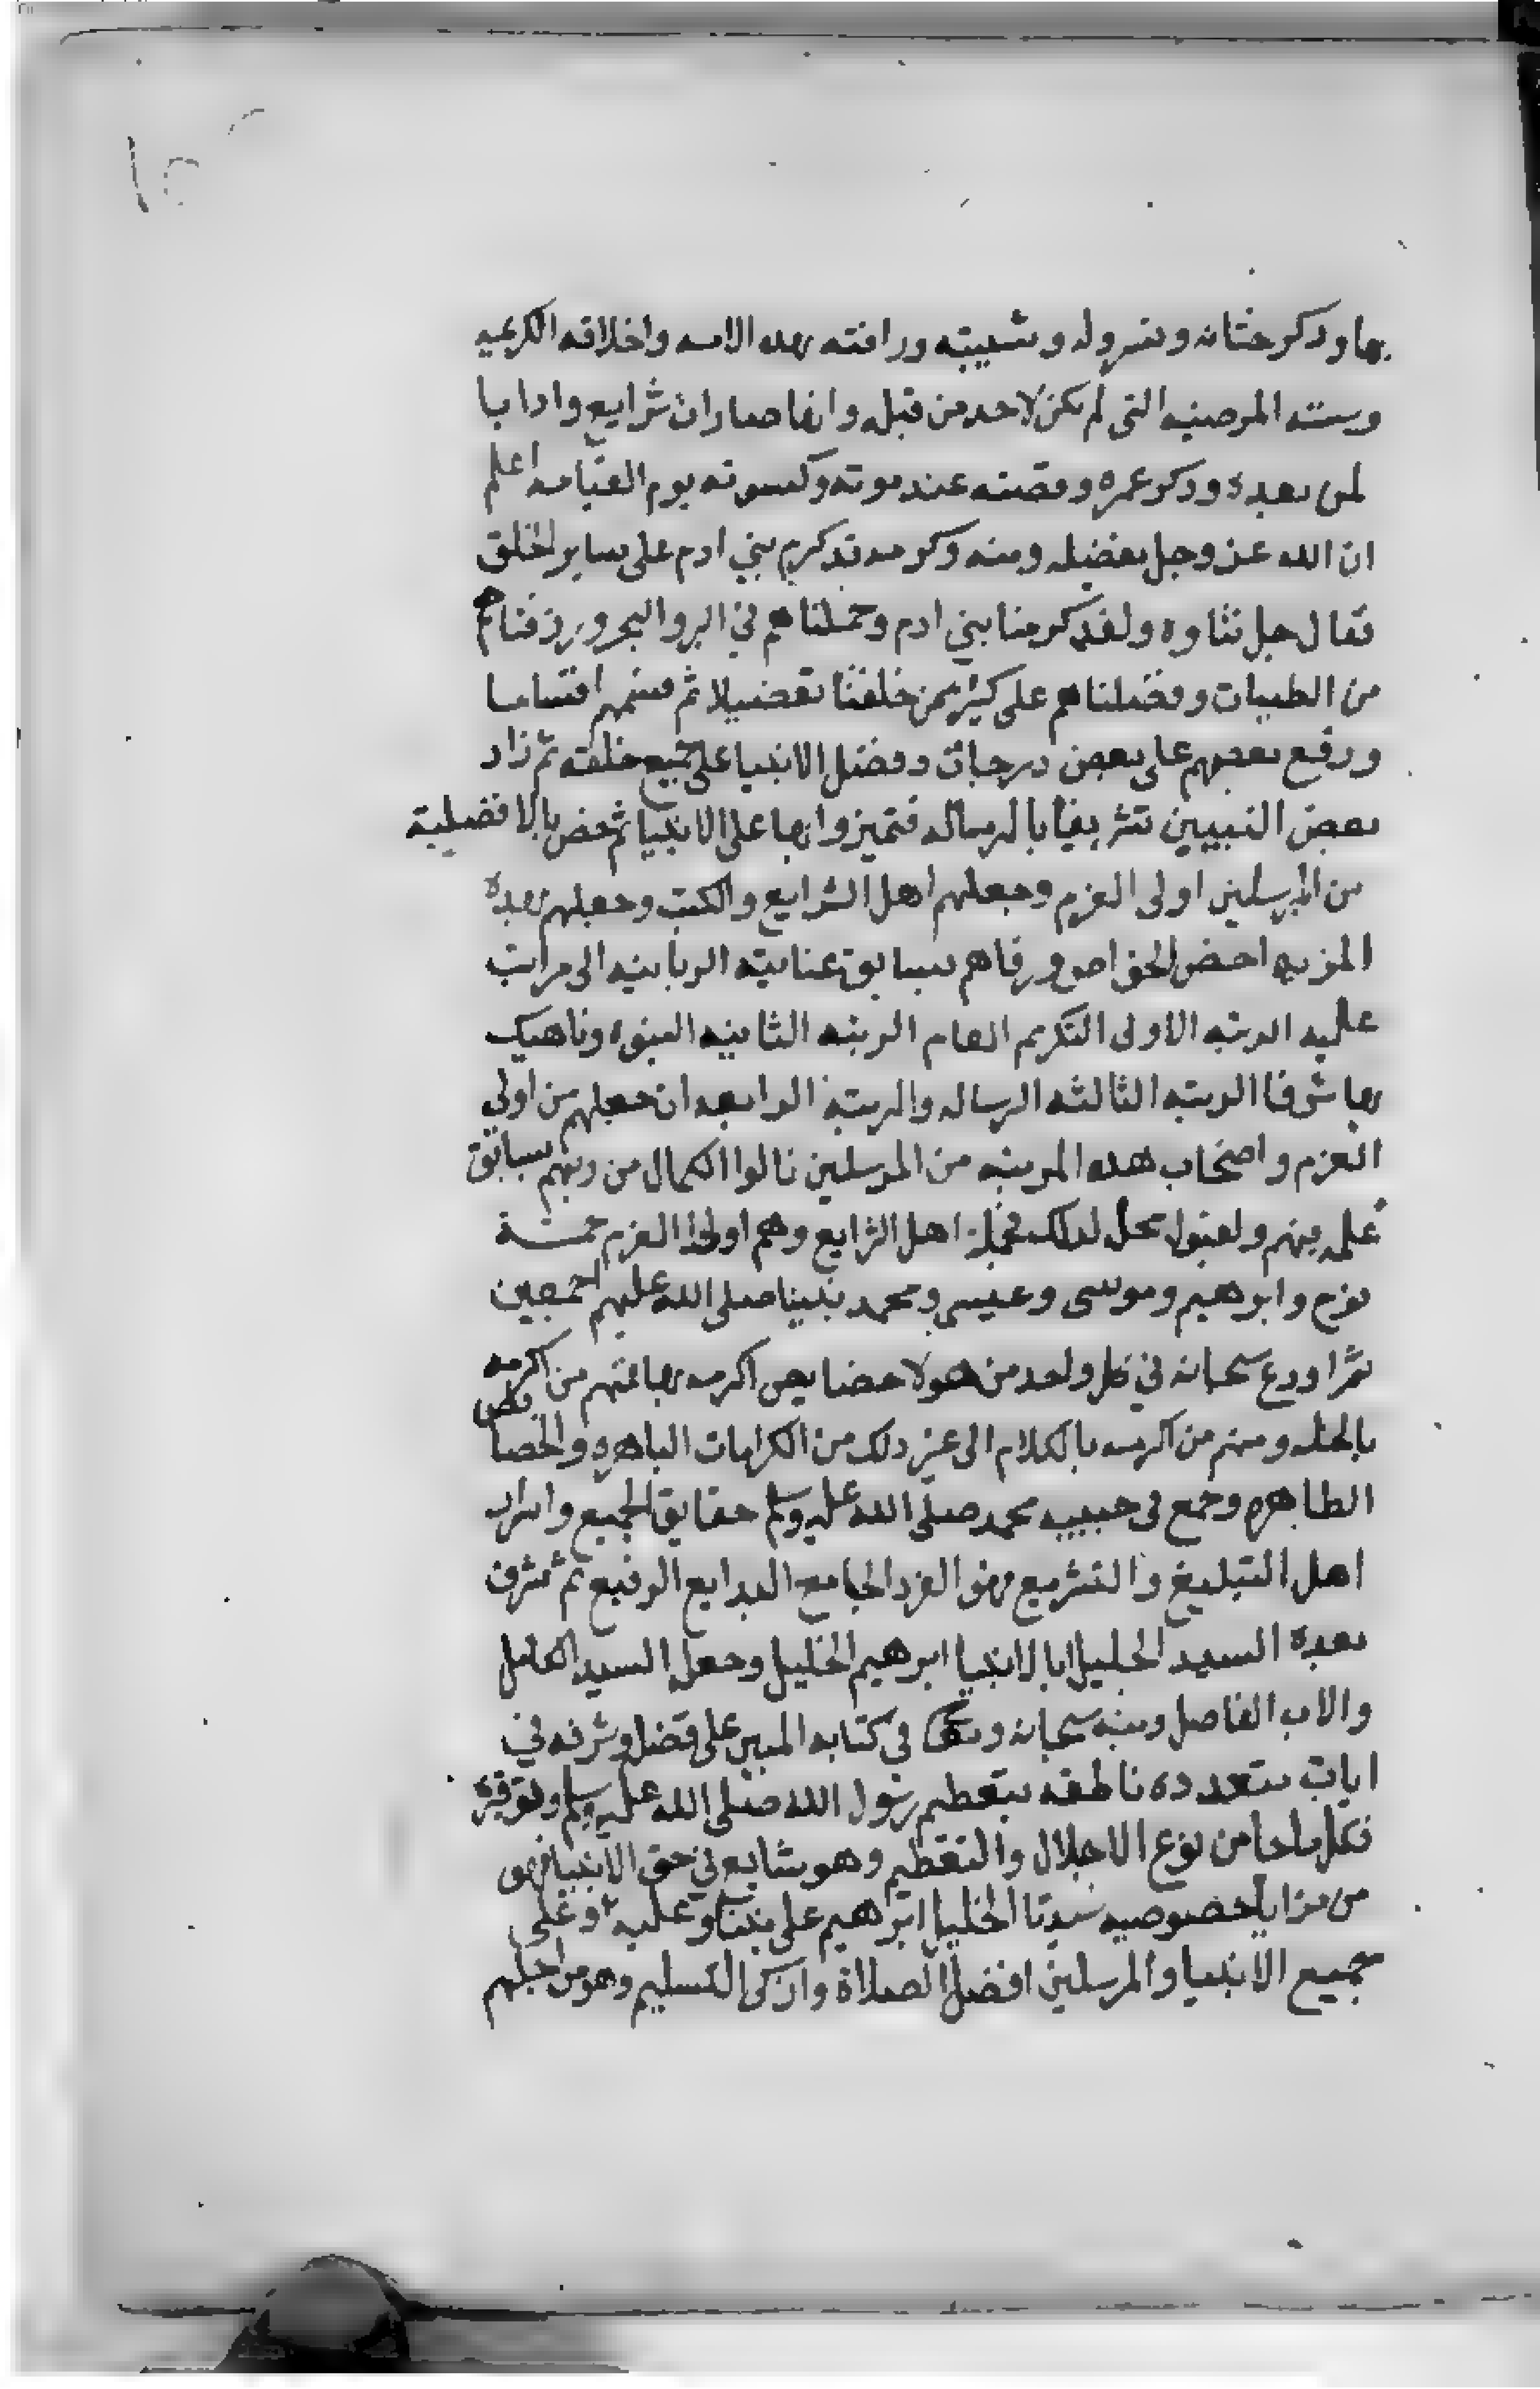 بها وذكر ختانه وتسروله وشيبته ورافته بهده الامه واخلاقه الكريميه
وسنته المرضيه التي لم تكن لاحد من قبله وانها صارات شرايع وادابا
لمن بعده وذكر عمره وقصته عند موته وكسوته يوم القيامه اعلم
ان الله عز وجل بفضله ومنه وكرمه قد كرم بني ادم على ساير الخلق
فقال جل ثناوه ولقد كرمنا بني ادم وحملناهم في البر والبحر ورزقناهم
من الطيبات وفضلناهم على كثير ممن خلقنا تفضيلا ثم قسمهم اقساما
ورفع بعضهم على بعض درجات وفضل الانبيا على جميع خلقه ثم زاد
بعض النبيين تشريفا بالرساله فتميزوا بها على الانبيا ثم خص بالافضلية
من المرسلين اولى العزم وجعلهم اهل الشرايع والكتب وجعلهم بهده
المزيه اخص الخواص ورقاهم بسابق عنايته الربانيه الى مراتب
عليه الرتبه الاولى التكريم العام الرتبه الثانيه النبوه وناهيك
بها شرفا الرتبه الثالثه الرساله والرتبه الرابعه ان جعلهم من اولي
العزم واصحاب هده المرتبه من المرسلين نالوا الكمال من ربهم بسابق
علمه فيهم ولقبول محل لدلك اهل الشرايع وهم اولوا العزم خمسة
نوح وابرهيم وموسى وعيسى ومحمد نبينا صلى الله عليهم اجمعين
ثم اودع سحانه في كل واحد من هولا خصايص اكرمه بها فمنهم من اكرمه
بالخله ومنهم من اكرمه بالكلام الى غير دلك من الكرامات الباهره والخصايص
الطاهره وجمع في حبيبه محمد صلى الله عليه وسلم حقايق الجميع واسرار
اهل التبليغ والتشريع فهو الفرد الجامع البدايع الرفيع ثم شرف
بعده السيد الجليل ابا الانبيا ابرهيم الخليل وجعل السيد الكامل
والاب الفاضل ونبه سحانه وتعالى في كتابه المبين على فضله وشرفه في
ايات متعدده ناطقه بتعظيم رسول الله صلى الله عليه وسلم وتوقيره
فكل ما جا من نوع الاجلال والتعظيم وهو شايع في حق الانبيا فهو
من مزايا خصوصيه سيدنا الخليل ابرهيم على نبينا وعليه وعلى
جميع الانبيا والمرسلين افضل الصلاة وازكى التسليم وهو من اجلهم